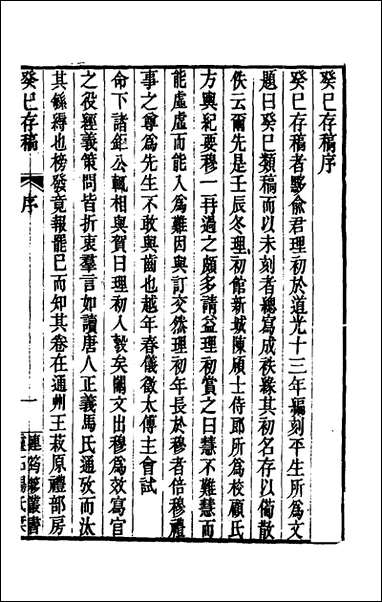 癸巳存稿序
癸巳存稿者黟俞君理初於道光十三年編刻平生所爲文
題曰癸巳類稿而以未刻者總寫成袟襲其初名存以備散
佚云爾先是壬辰冬理初館新城陳碩士侍郎所爲校顧氏
方輿紀要穆一再過之頗多請益理初賞之曰慧不難慧而
能虛虛而能入爲難因與訂交然理初年長於穆者倍穆禮
事之尊爲先生不敢與齒也越年春儀徵太傅主會試
命下諸鉅公輒相與賀曰理初入彀矣闈文出穆爲效寫官
之役經義策問皆折衷羣言如讀唐人正義馬氏通攷而汰
其緐碎也榜發竟報罷已而知其卷在通州王菽原禮部房
癸巳存稿 序 一
連筠簃叢書
靈石楊氏栞